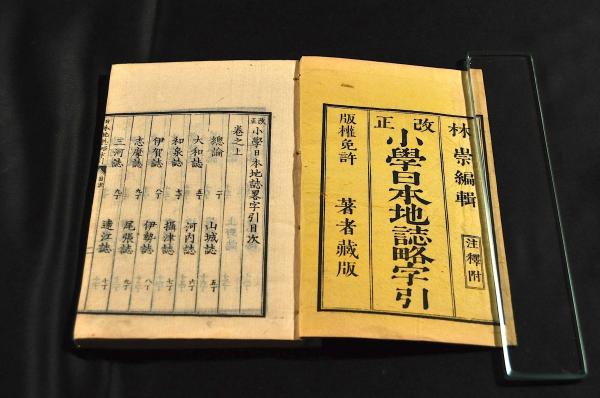 林崇編輯
注釋附
改正
小學日本地誌略字引
版權免許 著者藏版
改正 小學日本地誌畧字引目次
卷之上
總論 一丁 山城誌 五丁
大和誌 河内誌
和泉誌 攝津誌
伊賀誌 八丁 伊勢誌 八丁
志摩誌 尾張誌
三河誌 遠江誌